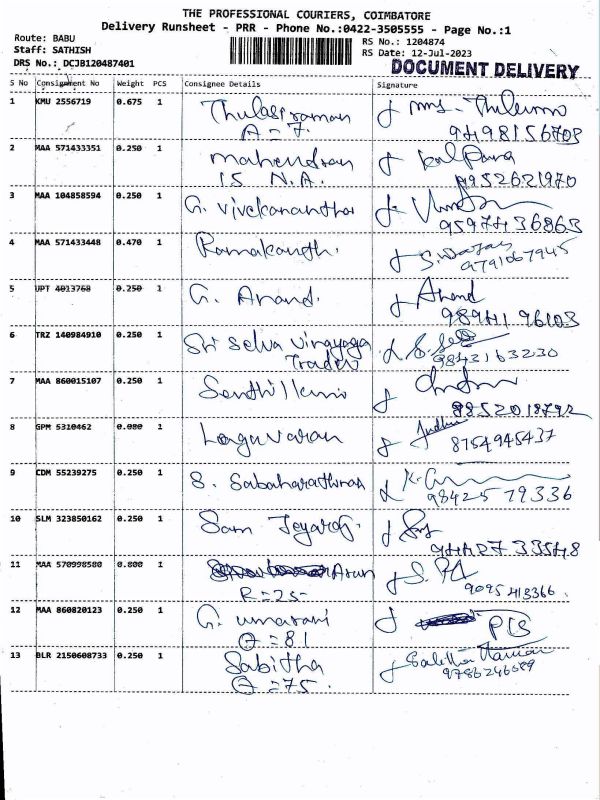 THE PROFESSIONAL COURIERS, COIMBATORE
Delivery Runsheet - PRR - Phone No.:0422-3505555 - Page No.:1
Route: BABU
RS No.: 1204874
Staff: SATHISH
RS Date: 12-Jul-2023
DRS No.: DCJB120487401
DOCUMENT DELIVERY
S No Consignment No Weight PCS Consignee Details Signature
1 KMU 2556719 0.675 1 Thulasiraman
A = 7. 9498156703
2 MAA 571433351 0.250 1 Mahendran Kalpana
15 N.A. 9952621970
3 MAA 104858594 0.250 1 G. Vivekananthan
9597436863
4 MAA 571433448 0.470 1 Ramakanth.
9791067945
5 UPT 4013768 0.250 1 G. Anand. Anand
98941 96103
6 TRZ 140984910 0.250 1 Sri Selva Vinayaga
Trader 9843163230
7 MAA 860015107 0.250 1
8852018792
8 GPM 5310462 0.080 1 Lagavaran
8754945437
9 CDM 55239275 0.250 1 S. Sabaharathinam
98425 79336
10 SLM 323850162 0.250 1 Sam
94427 33548
11 MAA 570998580 0.800 1 Arun
R = 25- 9095413366.
12 MAA 860820123 0.250 1 G. umarani
A = 81
13 BLR 2150608733 0.250 1 Sabitha
A = 75. 9786246689